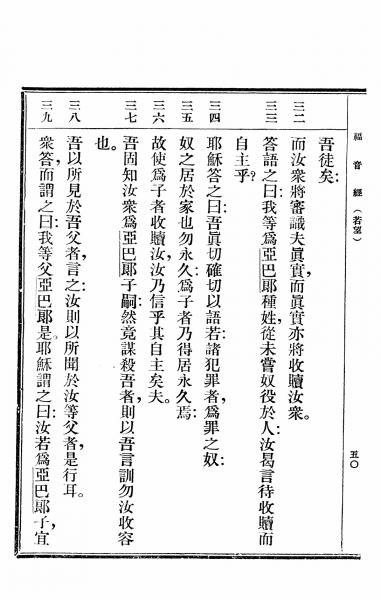 福音經（若望）
五〇
吾徒矣:
三二 而汝衆將審識夫眞實,而眞實亦將收贖汝衆。
三三 答語之曰:我等爲亞巴郞種姓,從未嘗奴役於人:汝曷言待收贖而
自主乎?
三四 耶穌答之曰:吾眞切確切以語若:諸犯罪者,爲罪之奴:
三五 奴之居於家也勿永久:爲子者乃得居永久焉:
三六 故使爲子者收贖汝,汝乃信乎其自主矣夫。
三七 吾固知汝衆爲亞巴郞子嗣:然竟謀殺吾者,則以吾言訓勿汝收容
也。
三八 吾以所見於吾父者,言之:汝則以所聞於汝等父者,是行耳。
三九 衆答,而謂之曰:我等父亞巴郞是。耶穌謂之曰:汝若爲亞巴郞子,宜